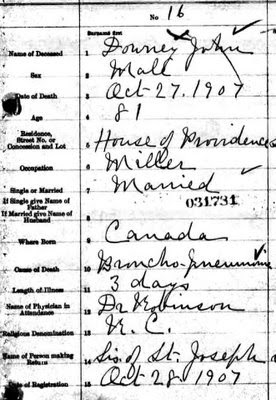 No 16
Surname first
Name of Deceased 1 Downey John
Sex 2 Male
Date of Death 3 Oct 27. 1907
Age 4 81
Residence,
Street No. or
Concession and Lot 5 House of Providence
Occupation 6 Miller
Single or Married 7 Married
If Single give Name of
Father
If Married give Name of
Husband 8 031731
Where Born 9 Canada
Cause of Death 10 Broncho-pneumonia
Length of Illness 11 3 days
Name of Physician in
Attendance 12 Dr Robinson
Religious Denomination 13 R. C.
Name of Person making
Return 14 Sis. of St. Joseph
Date of Registration 15 Oct 28. 1907